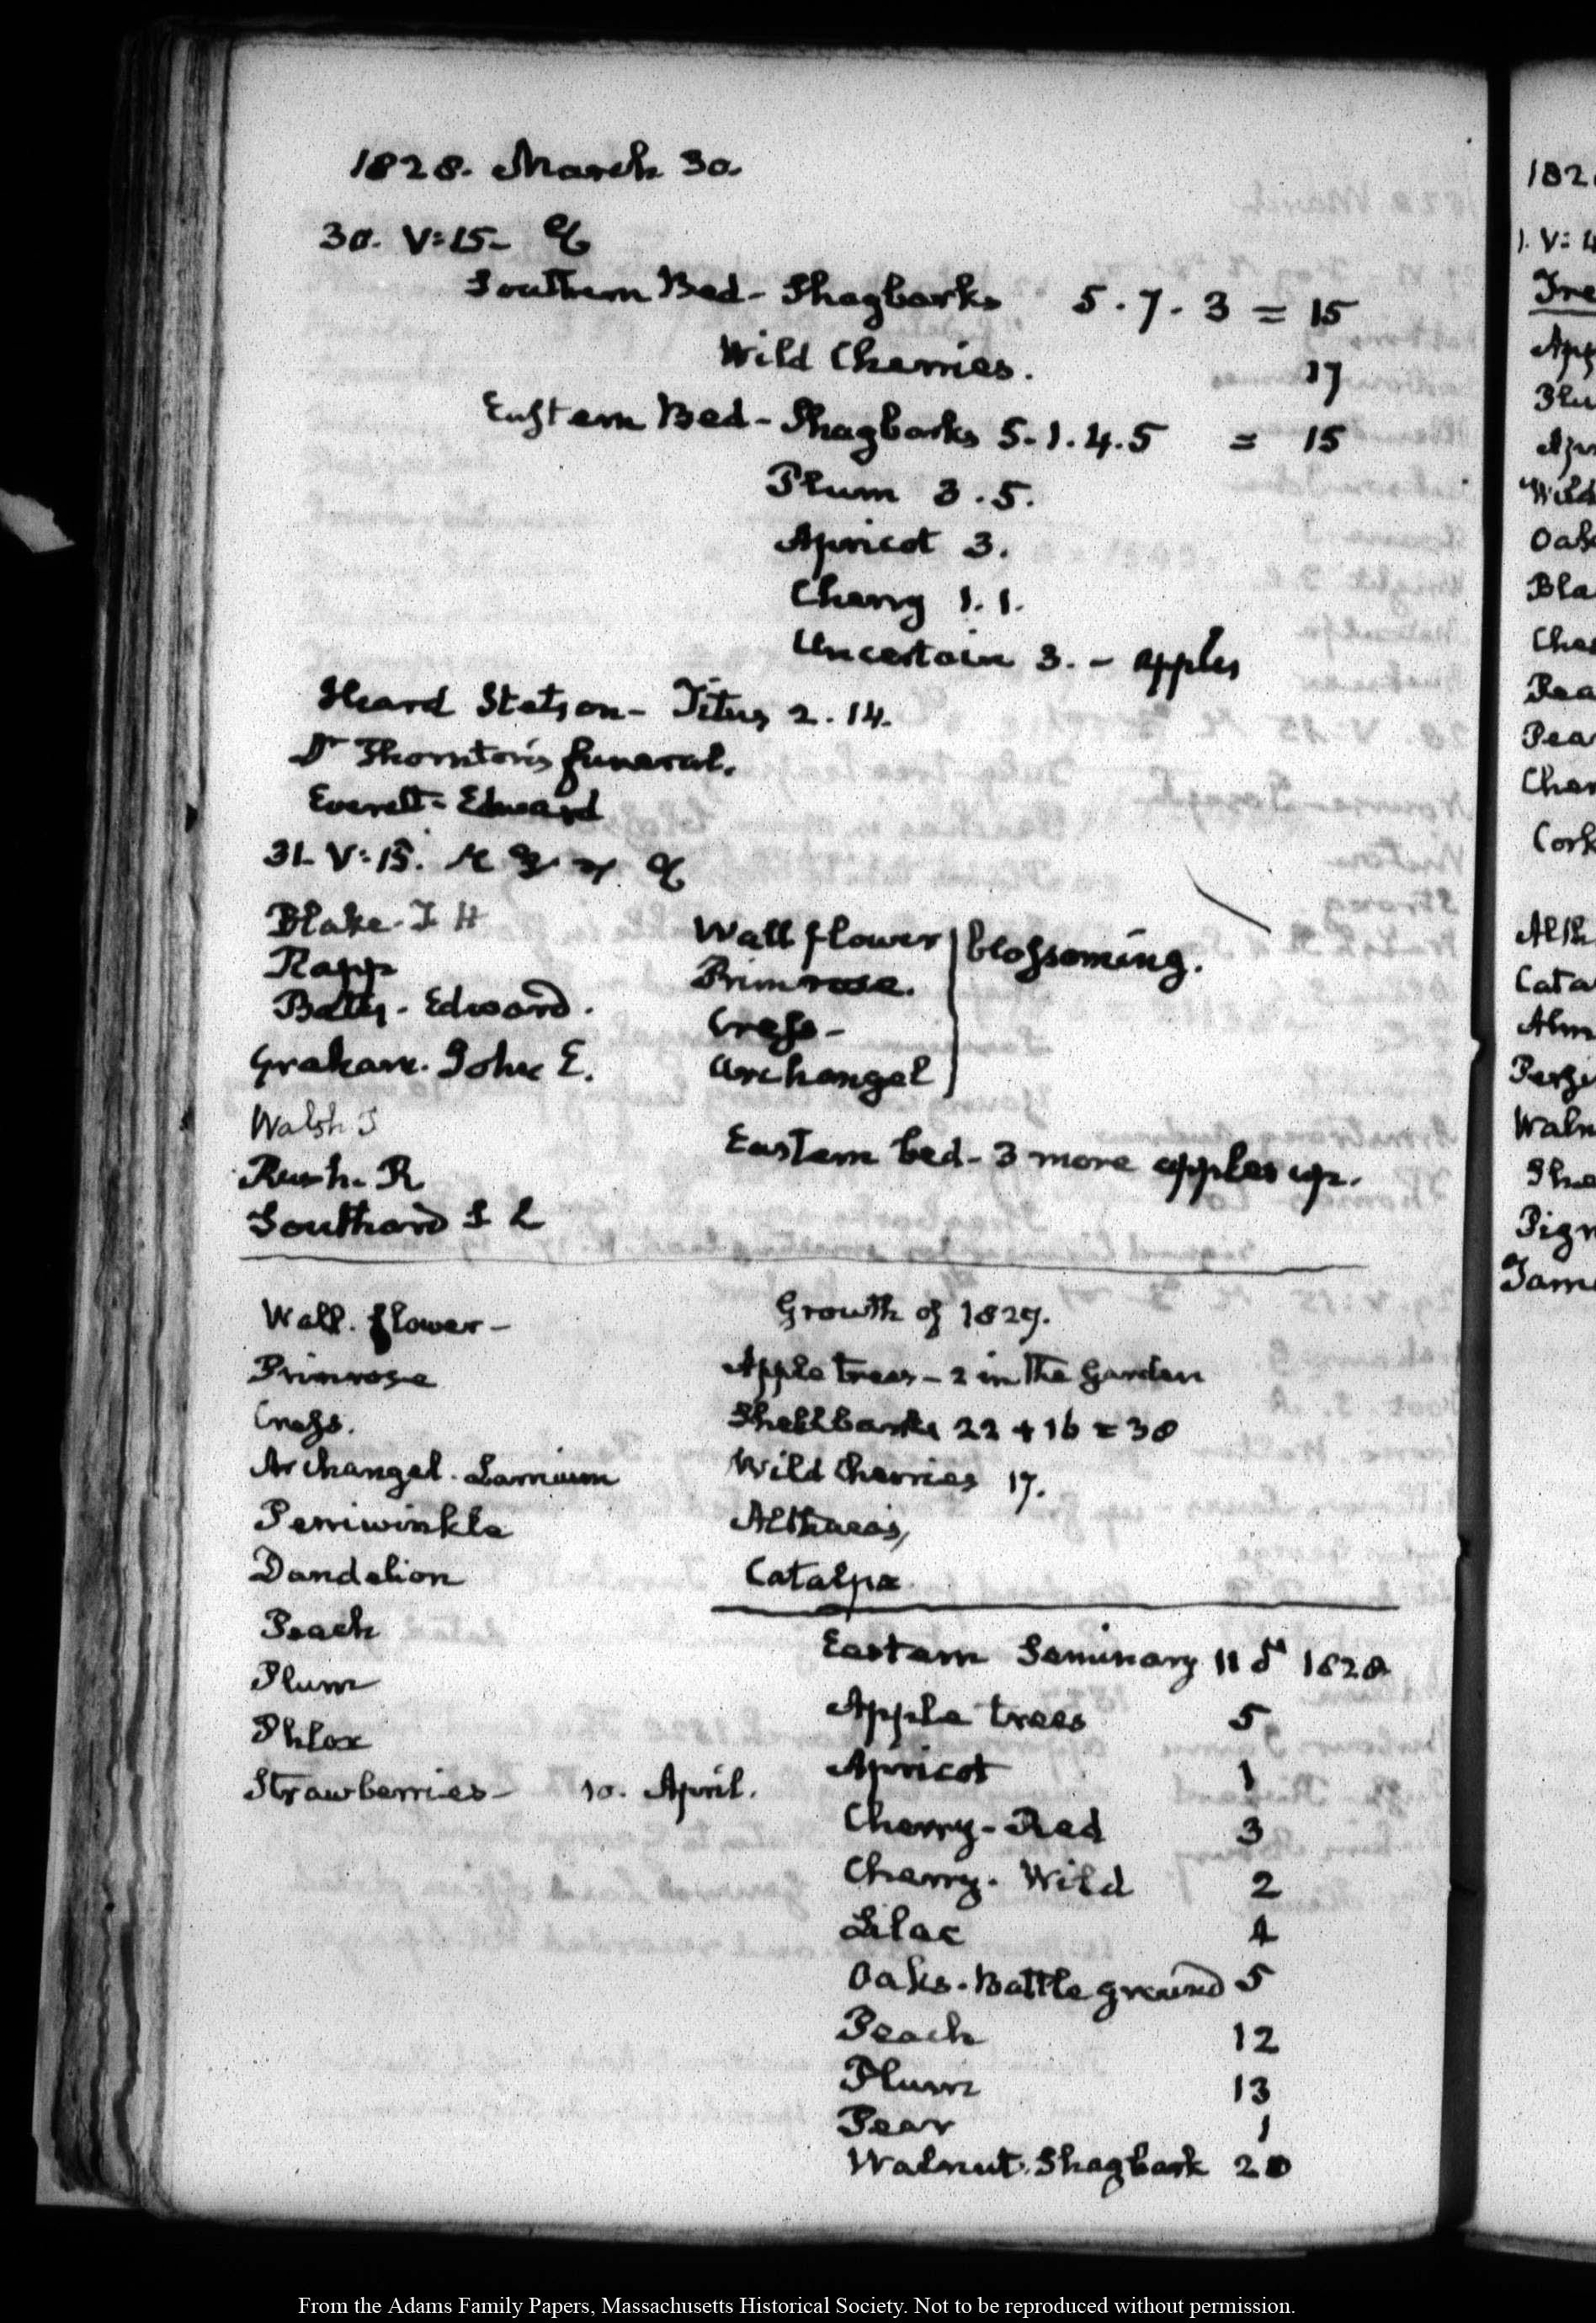 1828. March 30.
30. V:15-
Southern Bed- Shagbarks 5.7.3 = 15
Wild Cherries. 17
Eastern Bed- Shagbarks 5.1.4.5 = 15
Plum 3.5.
Apricot 3.
Cherry 1.1.
Uncertain 3. - apples
Heard Stetson- Titus 2.14.
Dr Thornton's funeral.
Everett- Edward
31. V:15.
Blake. J H
Rapp
Bates. Edward.
Graham. John E.
Walsh J
Rush. R
Southard S L
Wall flower
Primrose.
Cress-
Archangel
blossoming.
Eastern bed- 3 more apples up.
Wall. flower-
Primrose
Cress.
Archangel. Lamium
Periwinkle
Dandelion
Peach
Plum
Phlox
Strawberries- 10. April.
Growth of 1827.
Apple trees- 2 in the Garden
Shellbarks 22 + 16 = 38
Wild Cherries 17.
Althaeas,
Catalpa
Eastern Seminary 1828
Apple trees 5
Apricot 1
Cherry- Red 3
Cherry. Wild 2
Lilac 4
Oaks. Battle ground 5
Peach 12
Plum 13
Pear 1
Walnut. Shagbark 20
182
1. V: 4
Tre
App
Plu
Apr
Wild
Oak
Bla
Che
Pea
Pea
Cher
Cork
Alth
Cata
Alm
Persi
Waln
Sha
Pign
Tam
From the Adams Family Papers, Massachusetts Historical Society. Not to be reproduced without permission.